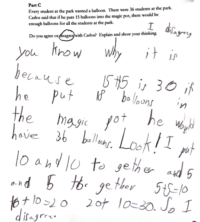 Part C
Every student at the park wanted a balloon. There were 36 students at the park.
Carlos said that if he put 15 balloons into the magic pot, there would be
enough balloons for all the students at the park.
I disagree
Do you agree or disagree with Carlos? Explain and show your thinking.
you know why it is
because 15+15 is 30 if
he put 18 balloons in
the magic pot he would
have 36 balloons. Look! I put
10 and 10 to gether and 5
and 5 to gether 5+5=10
10+10=20 20+10=30. So I
disagree